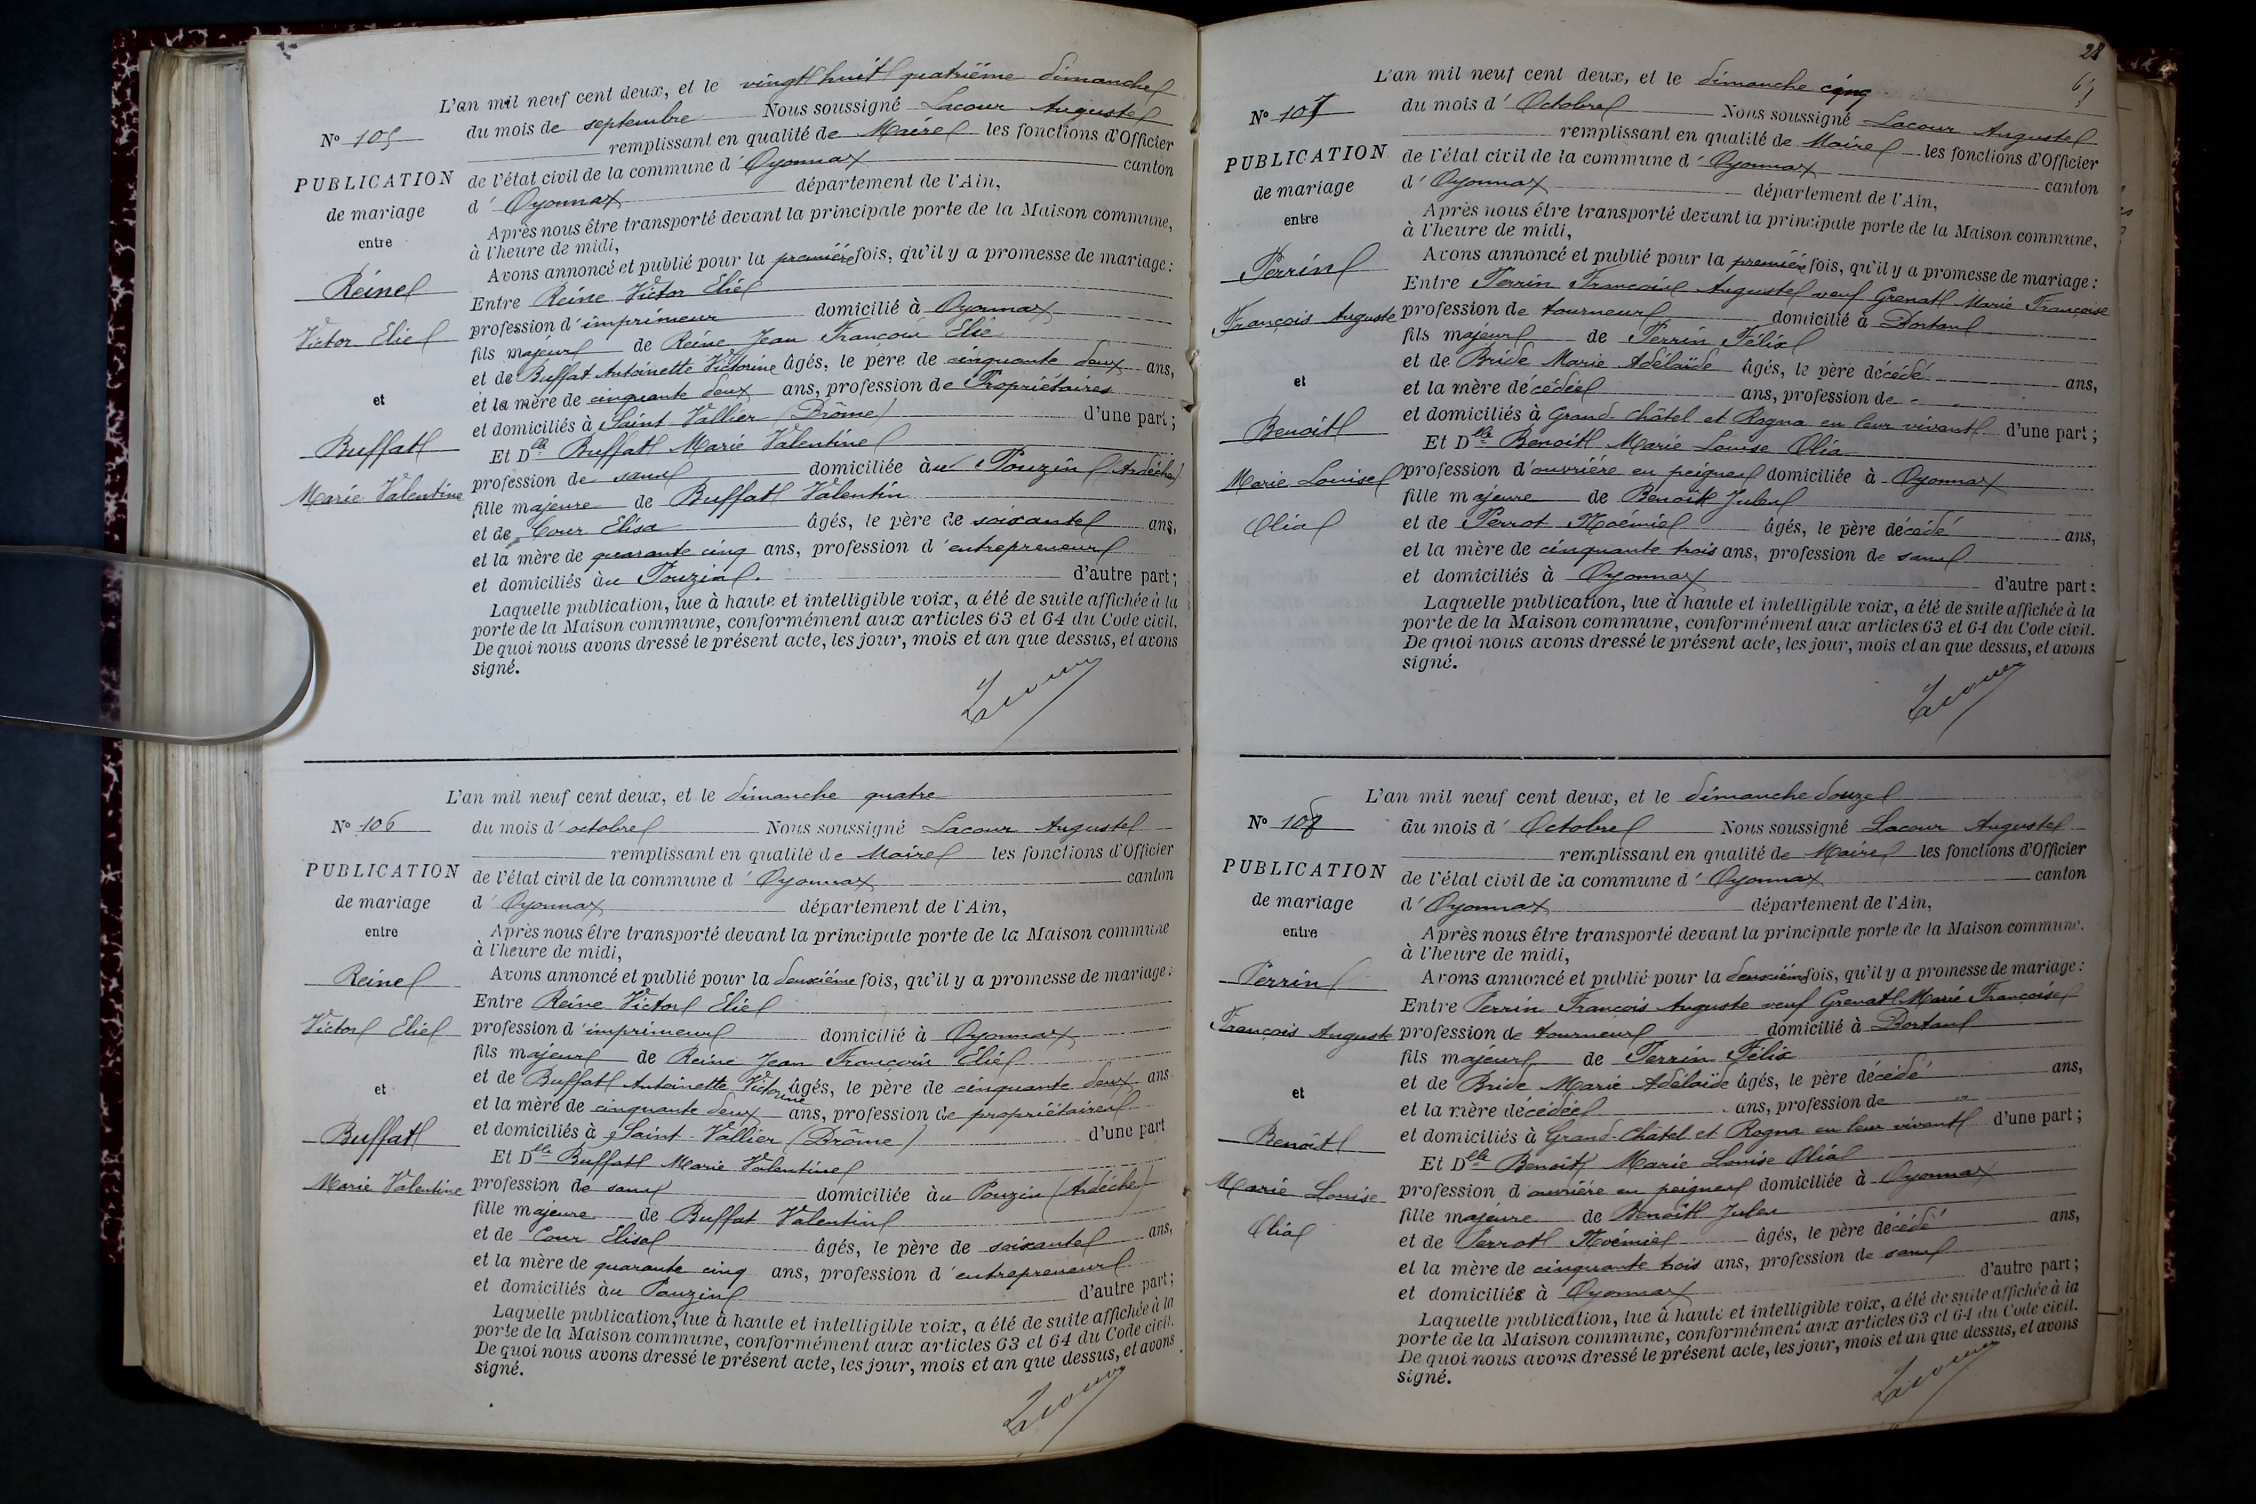 L'an mil neuf cent deux, et le vingt huit quatrième dimanche
N° 105
du mois de septembre Nous soussigné Lacour Auguste
remplissant en qualité de Maire les fonctions d'Officier
PUBLICATION
de mariage
entre
de l'état civil de la commune d'Oyonnax canton
d'Oyonnax département de l'Ain,
Après nous être transporté devant la principale porte de la Maison commune,
à l'heure de midi,
Avons annoncé et publié pour la première fois, qu'il y a promesse de mariage :
Reine
Victor Elie
et
Buffat
Marie Valentine
Entre Reine Victor Elie
profession d'imprimeur domicilié à Oyonnax
fils majeur de Reine Jean François Elie
et de Buffat Antoinette Victorine âgés, le père de cinquante deux ans,
et la mère de cinquante deux ans, profession de Propriétaires
et domiciliés à Saint Vallier (Drôme) d'une part ;
Et Dlle Buffat Marie Valentine
profession de sans domiciliée au Pouzin (Ardèche)
fille majeure de Buffat Valentin
et de Cour Elisa âgés, le père de soixante ans,
et la mère de quarante cinq ans, profession d'entrepreneur
et domiciliés au Pouzin. d'autre part ;
Laquelle publication, lue à haute et intelligible voix, a été de suite affichée à la
porte de la Maison commune, conformément aux articles 63 et 64 du Code civil.
De quoi nous avons dressé le présent acte, les jour, mois et an que dessus, et avons
signé.
Lacour
L'an mil neuf cent deux, et le dimanche quatre
N° 106
du mois d'octobre Nous soussigné Lacour Auguste
remplissant en qualité de Maire les fonctions d'Officier
PUBLICATION
de mariage
entre
de l'état civil de la commune d'Oyonnax canton
d'Oyonnax département de l'Ain,
Après nous être transporté devant la principale porte de la Maison commune
à l'heure de midi,
Avons annoncé et publié pour la deuxième fois, qu'il y a promesse de mariage :
Reine
Victor Elie
et
Buffat
Marie Valentine
Entre Reine Victor Elie
profession d'imprimeur domicilié à Oyonnax
fils majeur de Reine Jean François Elie
et de Buffat Antoinette Victorine âgés, le père de cinquante deux ans
et la mère de cinquante deux ans, profession de propriétaires
et domiciliés à Saint-Vallier (Drôme) d'une part
Et Dlle Buffat Marie Valentine
profession de sans domiciliée au Pouzin (Ardèche)
fille majeure de Buffat Valentin
et de Cour Elisa âgés, le père de soixante ans,
et la mère de quarante cinq ans, profession d'entrepreneur
et domiciliés au Pouzin d'autre part ;
Laquelle publication, lue à haute et intelligible voix, a été de suite affichée à la
porte de la Maison commune, conformément aux articles 63 et 64 du Code civil.
De quoi nous avons dressé le présent acte, les jour, mois et an que dessus, et avons
signé.
Lacour
28
L'an mil neuf cent deux, et le dimanche cinq
N° 107
du mois d'Octobre Nous soussigné Lacour Auguste
remplissant en qualité de Maire les fonctions d'Officier
PUBLICATION
de mariage
entre
de l'état civil de la commune d'Oyonnax canton
d'Oyonnax département de l'Ain,
Après nous être transporté devant la principale porte de la Maison commune,
à l'heure de midi,
Avons annoncé et publié pour la première fois, qu'il y a promesse de mariage :
Perrin
François Auguste
et
Benoit
Marie Louise
Olia
Entre Perrin François Auguste veuf Grenat Marie Françoise
profession de tourneur domicilié à Dortan
fils majeur de Perrin Félix
et de Bride Marie Adélaïde âgés, le père décédé ans,
et la mère décédée ans, profession de
et domiciliés à Grand-Châtel et Rogna en leur vivant d'une part ;
Et Dlle Benoit Marie Louise Olia
profession d'ouvrière en peignes domiciliée à Oyonnax
fille majeure de Benoit Jules
et de Perrot Noémie âgés, le père décédé ans,
et la mère de cinquante trois ans, profession de sans
et domiciliés à Oyonnax d'autre part :
Laquelle publication, lue à haute et intelligible voix, a été de suite affichée à la
porte de la Maison commune, conformément aux articles 63 et 64 du Code civil.
De quoi nous avons dressé le présent acte, les jour, mois et an que dessus, et avons
signé.
Lacour
L'an mil neuf cent deux, et le dimanche douze
N° 108
du mois d'Octobre Nous soussigné Lacour Auguste
remplissant en qualité de Maire les fonctions d'Officier
PUBLICATION
de mariage
entre
de l'état civil de la commune d'Oyonnax canton
d'Oyonnax département de l'Ain,
Après nous être transporté devant la principale porte de la Maison commune.
à l'heure de midi,
Avons annoncé et publié pour la deuxième fois, qu'il y a promesse de mariage :
Perrin
François Auguste
et
Benoit
Marie Louise
Olia
Entre Perrin François Auguste veuf Grenat Marie Françoise
profession de tourneur domicilié à Dortan
fils majeur de Perrin Félix
et de Bride Marie Adélaïde âgés, le père décédé ans,
et la mère décédée ans, profession de
et domiciliés à Grand-Châtel et Rogna en leur vivant d'une part ;
Et Dlle Benoit Marie Louise Olia
profession d'ouvrière en peignes domiciliée à Oyonnax
fille majeure de Benoit Jules
et de Perrot Noémie âgés, le père décédé ans,
et la mère de cinquante trois ans, profession de sans
et domiciliés à Oyonnax d'autre part ;
Laquelle publication, lue à haute et intelligible voix, a été de suite affichée à la
porte de la Maison commune, conformément aux articles 63 et 64 du Code civil.
De quoi nous avons dressé le présent acte, les jour, mois et an que dessus, et avons
signé.
Lacour